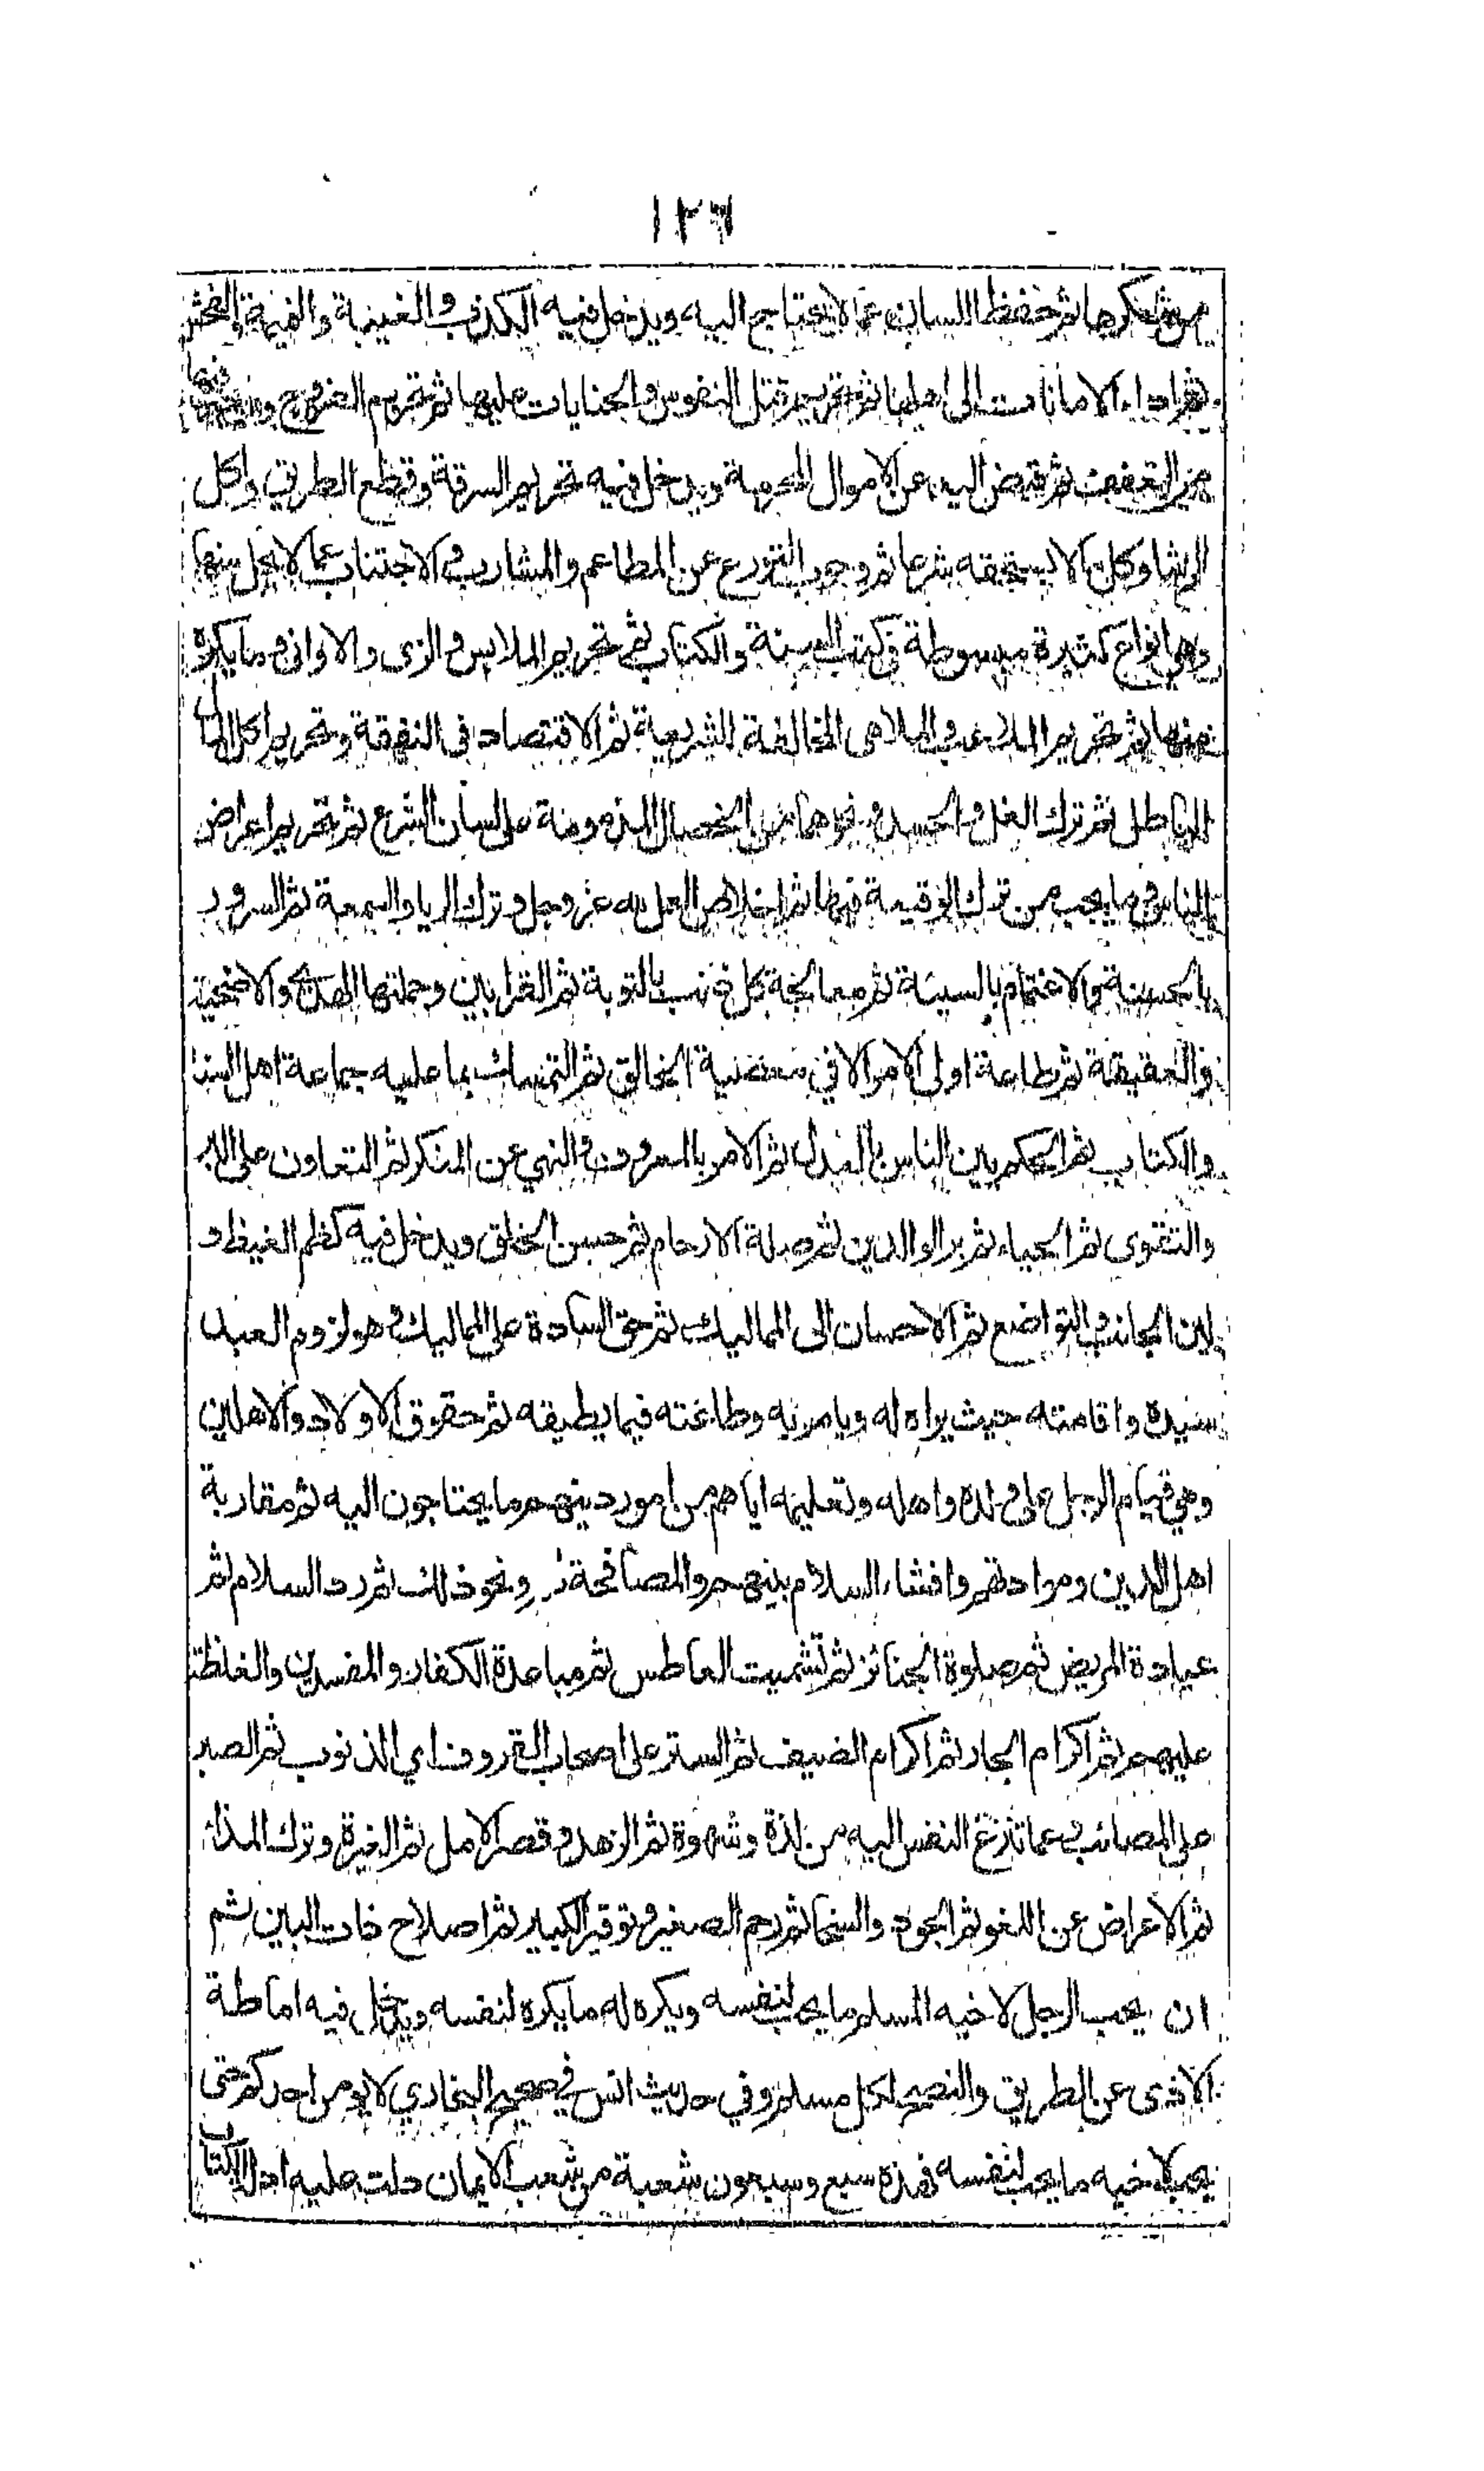 ١٢٦
من شكرها ثم حفظ اللسان عما لا يحتاج اليه ويدخل فيه الكذب والغيبة والنميمة والفحش
ثم اداء الامانات الى اهلها ثم تحريم قتل النفوس والجنايات عليها ثم تحريم الفروج وما يجب فيها
من التعفف ثم قبض اليد عن الاموال المحرمة ويدخل فيه تحريم السرقة وقطع الطريق واكل
الرشا وكل ما لا يستحقه شرعا ثم وجوب التورع عن المطاعم والمشارب والاجتناب عما لا يحل منها
وهي انواع كثيرة مبسوطة في كتب السنة والكتاب ثم تحريم الملابس والزى والاوانى وما يكره
منها ثم تحريم الملاعب والملاهى المخالفة للشريعة ثم الاقتصاد فى النفقة وتحريم اكل المال
بالباطل ثم ترك الغل والحسد ونحوهما من الخصال المذمومة على لسان الشرع ثم تحريم اعراض
الناس وما يجب من ترك الوقيعة فيها ثم اخلاص العمل لله عز وجل وترك الريا والسمعة ثم السرور
بالحسنة والاغتمام بالسيئة ثم معالجة كل ذنب بالتوبة ثم القرابين وجملتها الهدى والاضحية
والعقيقة ثم طاعة اولى الامر الا في معصية الخالق ثم التمسك بما عليه جماعة اهل السنة
والكتاب ثم الحكم بين الناس بالعدل ثم الامر بالمعروف والنهي عن المنكر ثم التعاون على البر
والتقوى ثم الحياء ثم بر الوالدين ثم صلة الارحام ثم حسن الخلق ويدخل فيه كظم الغيظ و
لين الجانب والتواضع ثم الاحسان الى المماليك ثم حق السادة على المماليك وهو لزوم العبد
سيده واقامته حيث يراه له ويامر به وطاعته فيما يطيقه ثم حقوق الاولاد والاهلين
وهي قيام الرجل على ولده واهله وتعليمه اياهم من امور دينهم ما يحتاجون اليه ثم مقاربة
اهل الدين وموادتهم وافشاء السلام بينهم والمصافحة ونحو ذلك ثم رد السلام ثم
عيادة المريض ثم صلوة الجنائز ثم تشميت العاطس ثم مباعدة الكفار والمفسدين والغلظة
عليهم ثم اكرام الجار ثم اكرام الضيف ثم الستر على اصحاب القروف اي الذنوب ثم الصبر
على المصائب وعما تنزع النفس اليه من لذة وشهوة ثم الزهد وقصر الامل ثم الغيرة وترك المذاء
ثم الاعراض عن اللغو ثم الجود والسخا ثم رحم الصغير وتوقير الكبير ثم اصلاح ذات البين ثم
ان يحب الرجل لاخيه المسلم ما يحب لنفسه ويكره له ما يكره لنفسه ويدخل فيه اماطة
الاذى عن الطريق والنصح لكل مسلم وفي حديث انس في صحيح البخاري لا يومن احدكم حتى
يحب لاخيه ما يحب لنفسه فهذه سبع وسبعون شعبة من شعب الايمان دلت عليه ادلة الكتاب